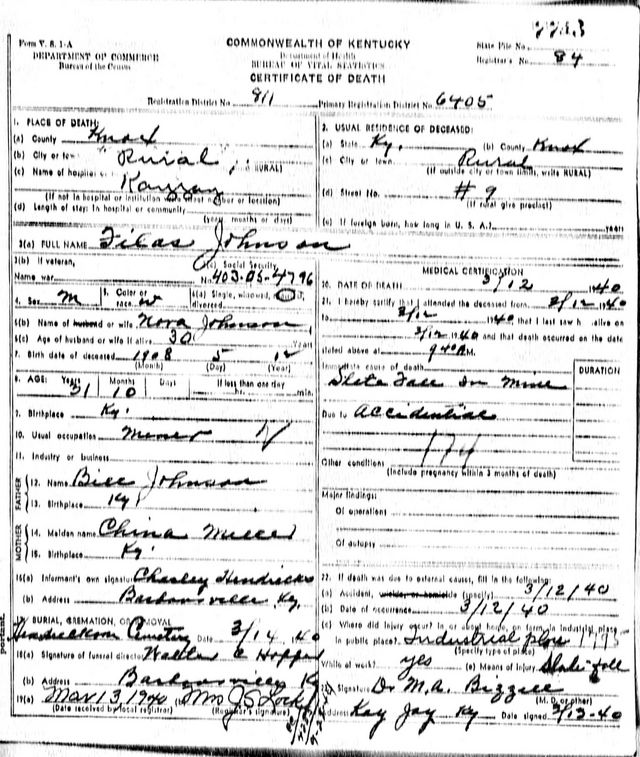 7713
Form V. S. 1-A
DEPARTMENT OF COMMERCE
Bureau of the Census
COMMONWEALTH OF KENTUCKY
Department of Health
BUREAU OF VITAL STATISTICS
CERTIFICATE OF DEATH
State File No.
Registrar's No. 84
Registration District No. 811 Primary Registration District No. 6405
1. PLACE OF DEATH:
(a) County Knox
(b) City or town "Rural"
RURAL)
(c) Name of hospital
(If not in hospital or institution write street number or location)
(d) Length of stay: In hospital or community
(years, months or days)
2. USUAL RESIDENCE OF DECEASED:
(a) State Ky. (b) County Knox
(c) City or town Rural
(If outside city or town limits, write RURAL)
(d) Street No. #9
(If rural give precinct)
(e) If foreign born, how long in U. S. A.? years
3(a) FULL NAME Johnson
3(b) If veteran,
Name war
(c) Social Security
No. 403-05-4796
4. Sex M
5. Color or race W
6(a) Single, widowed, married, divorced
6(b) Name of husband or wife Nora Johnson
6(c) Age of husband or wife if alive 30 Years
7. Birth date of deceased 1908 5 12
(Month) (Day) (Year)
8. AGE: Years 31 Months 10 Days If less than one day
hr. min.
9. Birthplace Ky.
10. Usual occupation Miner
11. Industry or business
FATHER
12. Name Bill Johnson
13. Birthplace Ky
MOTHER
14. Maiden name China Mills
15. Birthplace Ky.
16(a) Informant's own signature Charley Hendricks
(b) Address Barbourville Ky.
17. BURIAL, CREMATION, OR REMOVAL
Cemetery Date 3/14 40
18(a) Signature of funeral director Walter Hopper
(b) Address Barbourville Ky
19(a) Mar 13 1940 (b) Mrs J S Lock
(Date received by local registrar) (Registrar's signature)
MEDICAL CERTIFICATION
20. DATE OF DEATH 3/12 1940
21. I hereby certify that I attended the deceased from 3/12 1940
to 3/12 1940 that I last saw h alive on
3/12 1940 and that death occurred on the date
stated above at 9 40 A M.
Immediate cause of death DURATION
Slate Fall In Mine
Due to Accidential
174
Other conditions
(Include pregnancy within 3 months of death)
Major findings:
Of operations
Of autopsy
22. If death was due to external causes, fill in the following:
(a) Accident, suicide, or homicide (specify) 3/12/40
(b) Date of occurrence 3/12/40
(c) Where did injury occur? In or about home, on farm, in industrial place,
in public place? Industrial place
(Specify type of place)
While at work? yes (e) Means of injury Slate fall
23. Signature Dr M. A. Bizzell
(M. D. or other)
Address Kay Jay Ky Date signed 3/13-40